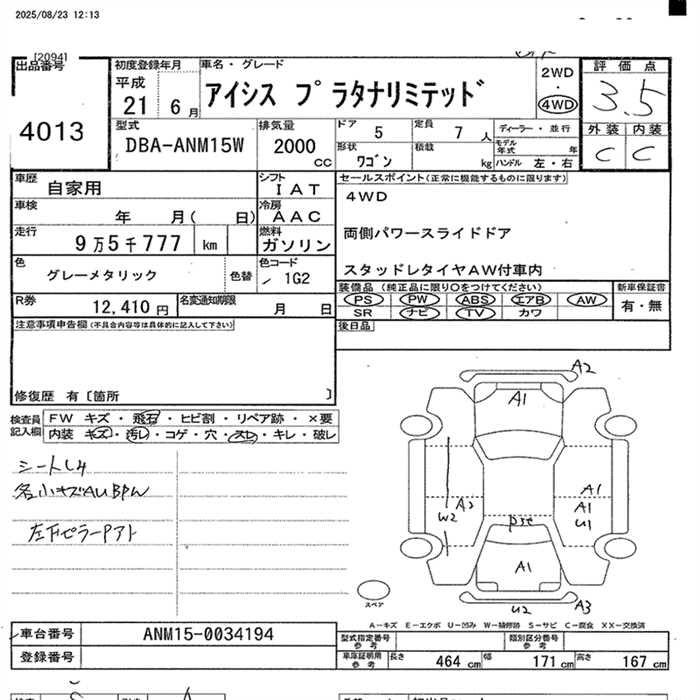 2025/08/23 12:13
[2094]
出品番号
4013
初度登録年月
平成
21 6月
車名・グレード
アイシス プラタナリミテッド
2WD
・
4WD
評価点
3.5
外装 内装
C C
型式
DBA-ANM15W
排気量
2000
cc
ドア 5
定員 7人
形状
ワゴン
積載
kg
ディーラー・並行
モデル年式 年
ハンドル 左・右
車歴 自家用
シフト
IAT
セールスポイント(正常に機能するものに限ります)
4WD
両側パワースライドドア
スタッドレタイヤAW付車内
車検 年 月( 日)
冷房
AAC
走行 9万5千777 km
燃料
ガソリン
色 グレーメタリック
色替
色コード
1G2
装備品(純正品に限り○をつけてください)
PS PW ABS エアB AW
SR ナビ TV カワ
新車保証書
有・無
R券 12,410円
名変通知期限 月 日
後日品
注意事項申告欄(不具合内容等は具体的に記入して下さい)
修復歴 有〔箇所 〕
検査員
記入欄
FW キズ・飛石・ヒビ割・リペア跡・×要
内装 キズ・汚レ・コゲ・穴・スレ・キレ・破レ
シートしみ
各小キズAUBPW
左下ピラーPアト
A2
A1
A2
W2
A1
A1
U1
A1
U2
A3
スペア
A-キズ E-エクボ U-凹み W-補修跡 S-サビ C-腐食 XX-交換済
車台番号 ANM15-0034194
登録番号
型式指定番号
参考
類別区分番号
参考
車庫証明用
参考
長さ 464 cm 幅 171 cm 高さ 167 cm